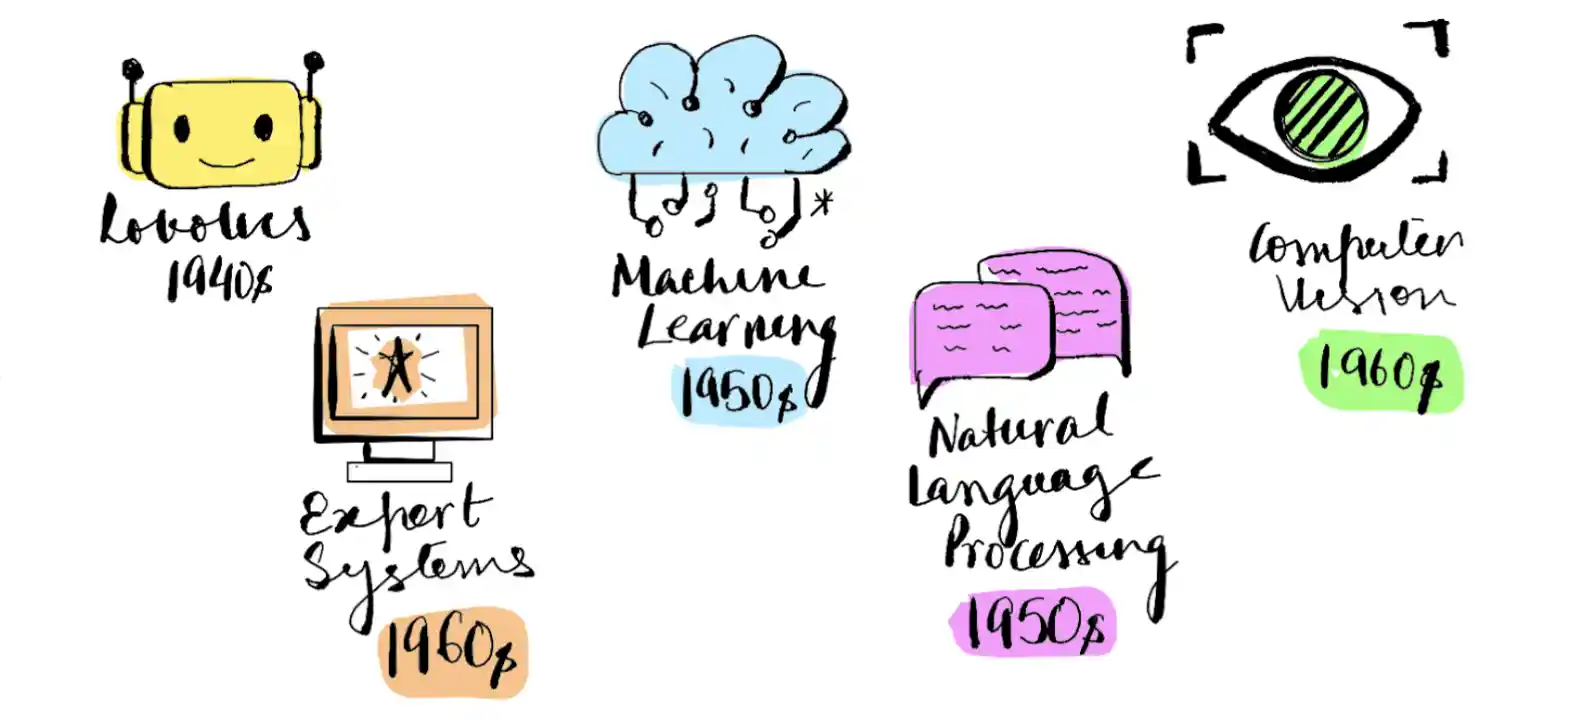 Robotics
1940s
Expert
Systems
1960s
Machine
Learning
1950s
Natural
Language
Processing
1950s
Computer
Vision
1960s